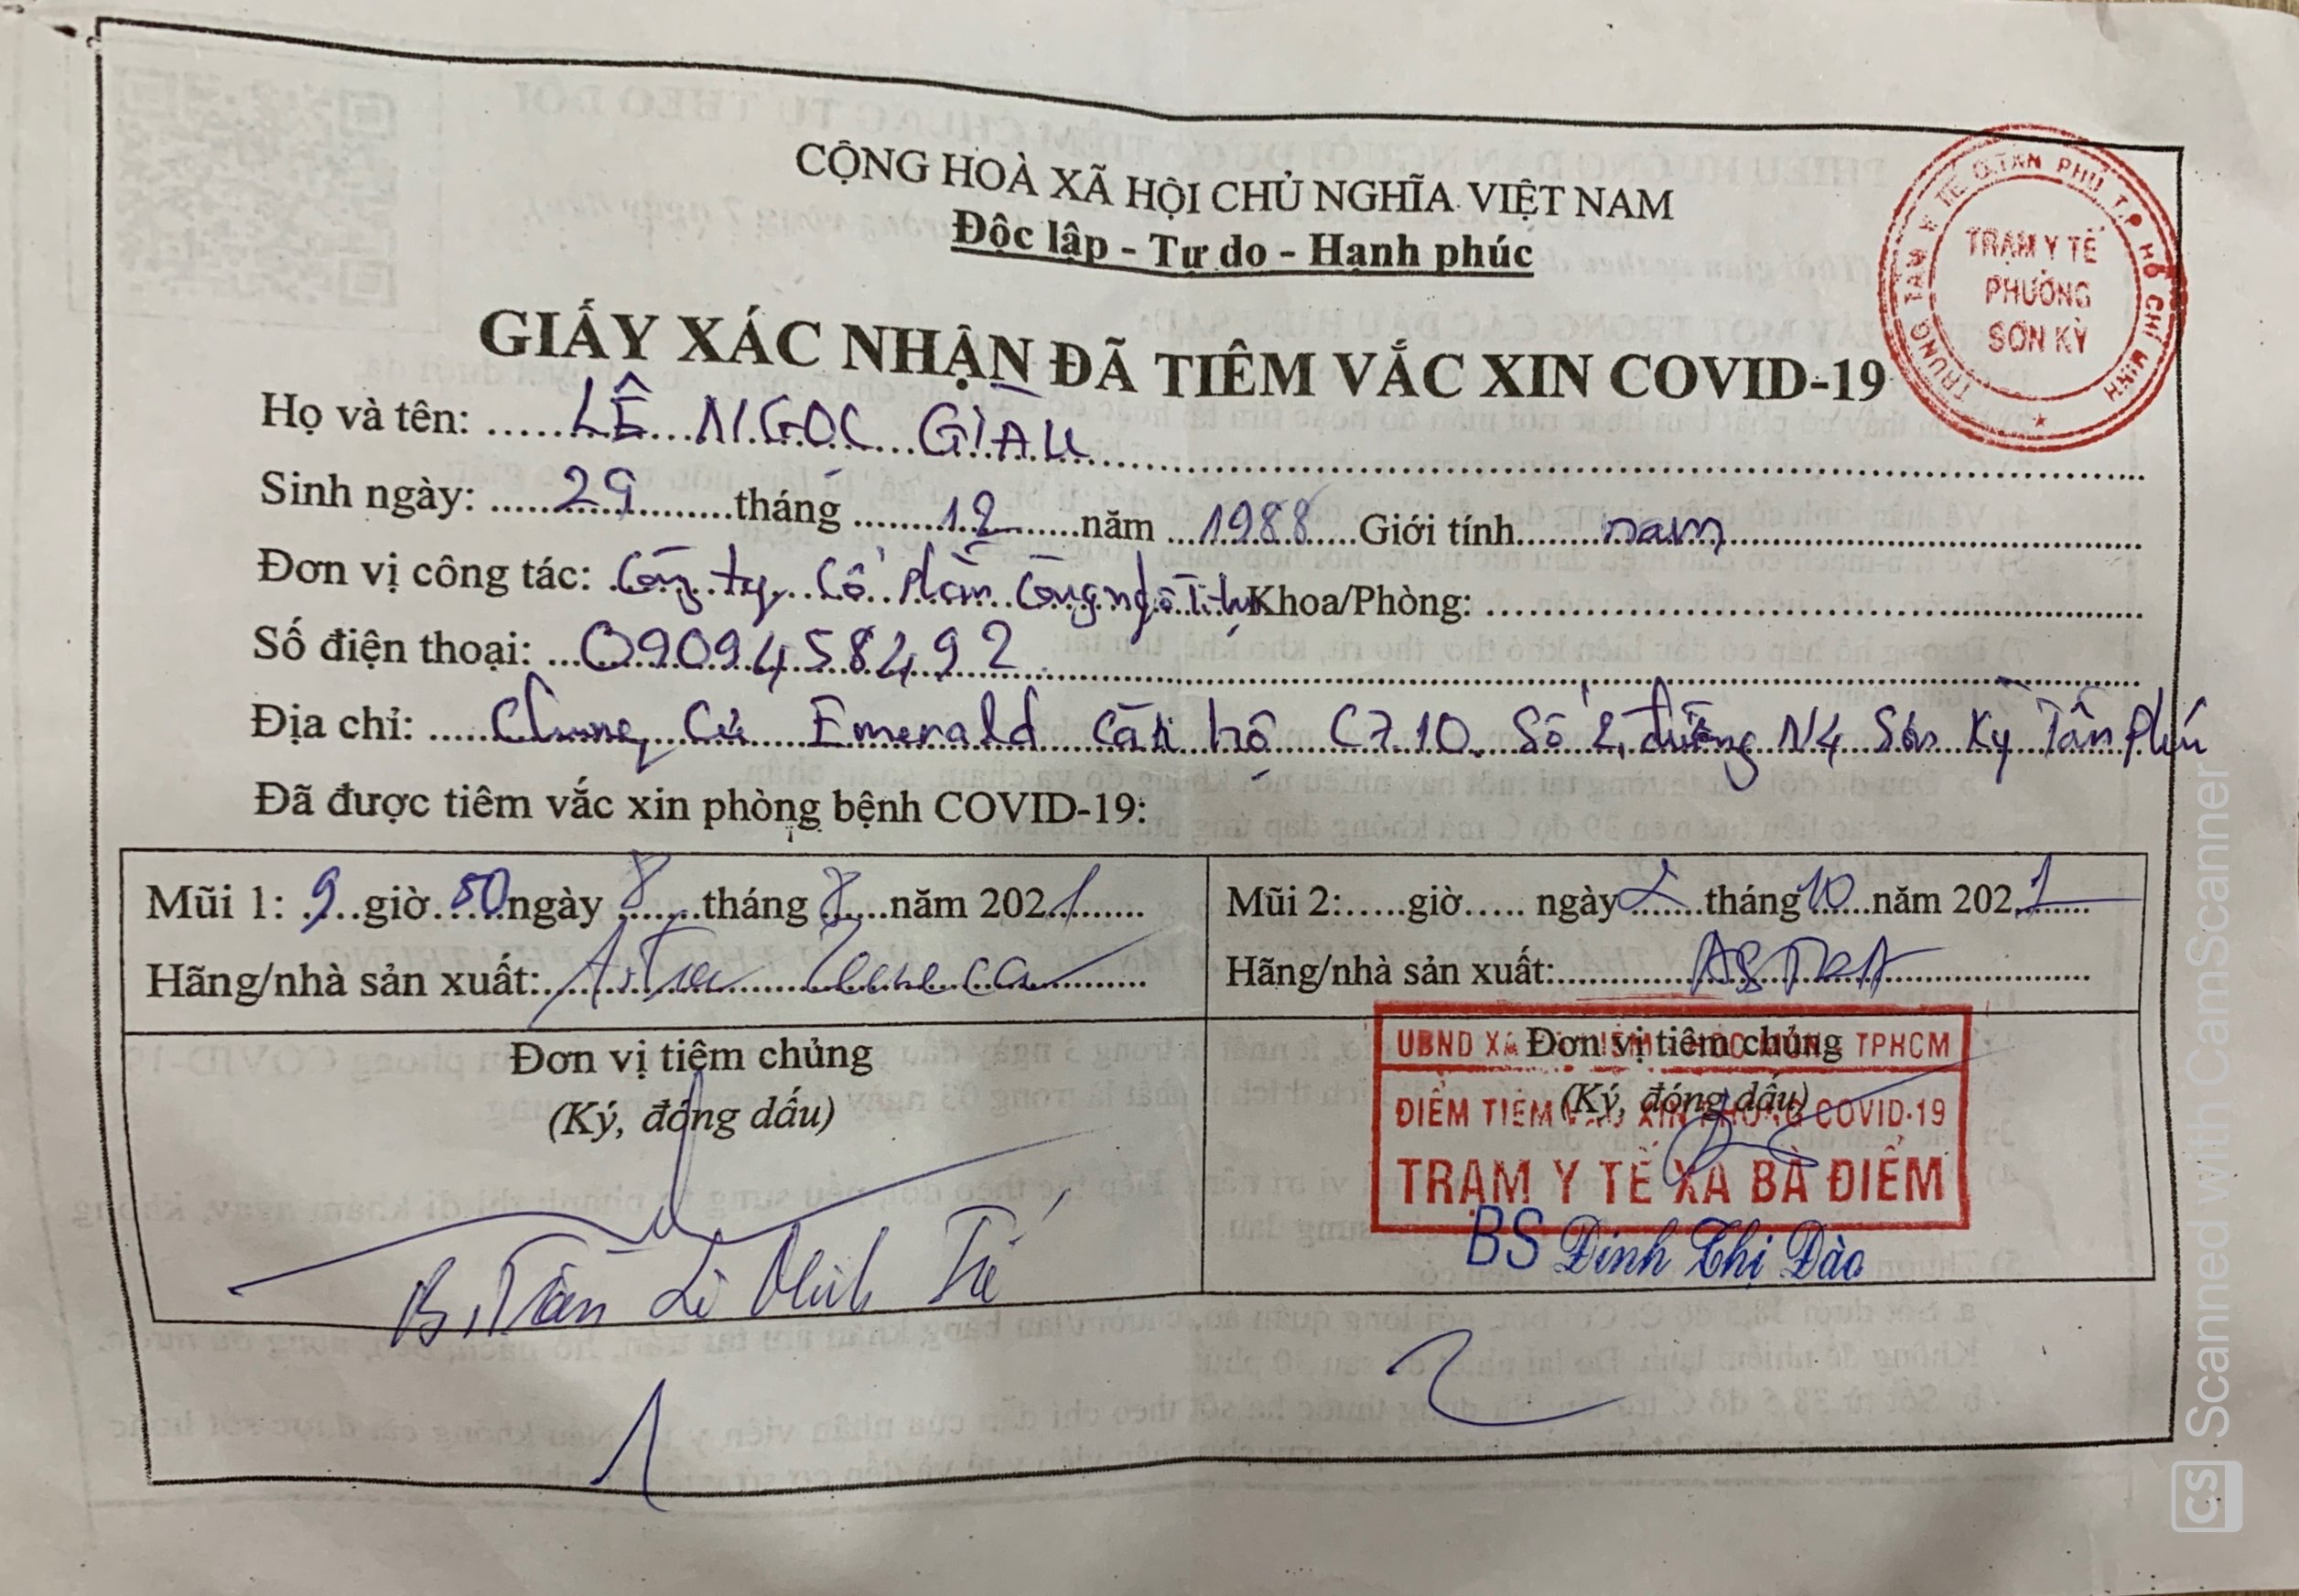 CỘNG HOÀ XÃ HỘI CHỦ NGHĨA VIỆT NAM
Độc lập - Tự do - Hạnh phúc
TRUNG TÂM Y TẾ Q.TÂN PHÚ T.P HỒ CHÍ MINH
TRẠM Y TẾ
PHƯỜNG
SƠN KỲ
GIẤY XÁC NHẬN ĐÃ TIÊM VẮC XIN COVID-19
Họ và tên: LÊ NGỌC GIÀU
Sinh ngày: 29 tháng 12 năm 1988 Giới tính nam
Đơn vị công tác: Công ty Cổ Phần Khoa/Phòng:
Số điện thoại: 0909458492
Địa chỉ: Chung Cư Emerald Căn hộ C7.10. Số 2, đường N4 Sơn Kỳ Tân Phú
Đã được tiêm vắc xin phòng bệnh COVID-19:
Mũi 1: 9 giờ 50 ngày 8 tháng 8 năm 2021
Hãng/nhà sản xuất: Astra Zeneca
Mũi 2: giờ ngày 2 tháng 10 năm 2021
Hãng/nhà sản xuất: ASTRA
Đơn vị tiêm chủng
(Ký, đóng dấu)
Đơn vị tiêm chủng
(Ký, đóng dấu)
UBND XÃ TPHCM
ĐIỂM TIÊM VẮC XIN PHÒNG COVID-19
TRẠM Y TẾ XÃ BÀ ĐIỂM
BS Đinh Thị Đào
1
2
CS Scanned with CamScanner